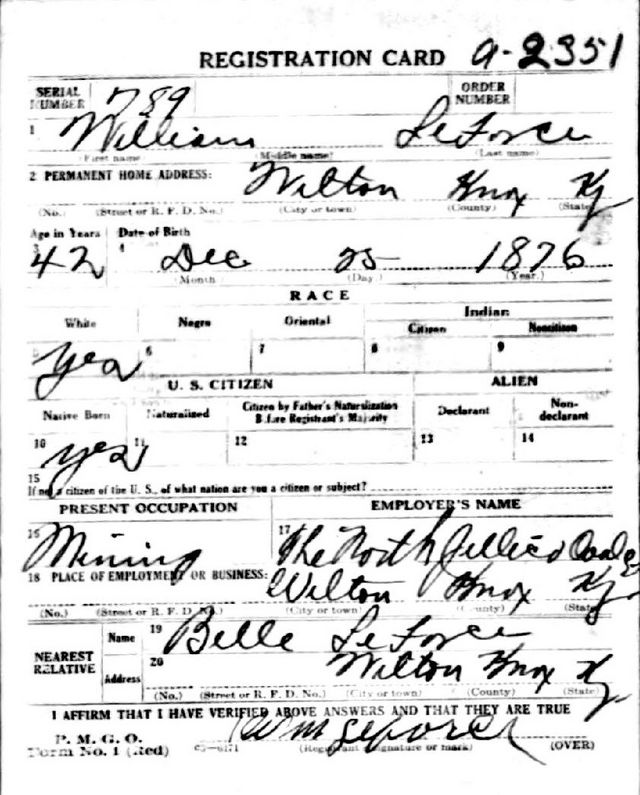 REGISTRATION CARD a-2351
SERIAL NUMBER 789 ORDER NUMBER
1 William LeForce
(First name) (Middle name) (Last name)
2 PERMANENT HOME ADDRESS: Wilton Knox Ky
(No.) (Street or R. F. D. No.) (City or town) (County) (State)
Age in Years Date of Birth
3 42 4 Dec 25 1876
(Month) (Day) (Year)
RACE
White Negro Oriental Indian
Citizen Noncitizen
5 Yes 6 7 8 9
U. S. CITIZEN ALIEN
Native Born Naturalized Citizen by Father's Naturalization Before Registrant's Majority Declarant Non-declarant
10 yes 11 12 13 14
15
If not a citizen of the U. S., of what nation are you a citizen or subject?
PRESENT OCCUPATION EMPLOYER'S NAME
16 Mining 17 The North Jellico Coal
18 PLACE OF EMPLOYMENT OR BUSINESS: Wilton Knox Ky
(No.) (Street or R. F. D. No.) (City or town) (County) (State)
NEAREST RELATIVE Name 19 Belle LeForce
Address 20 Wilton Knox Ky
(No.) (Street or R. F. D. No.) (City or town) (County) (State)
I AFFIRM THAT I HAVE VERIFIED ABOVE ANSWERS AND THAT THEY ARE TRUE
P. M. G. O.
Form No. 1 (Red) Wm Leforce
(Registrant signature or mark) (OVER)